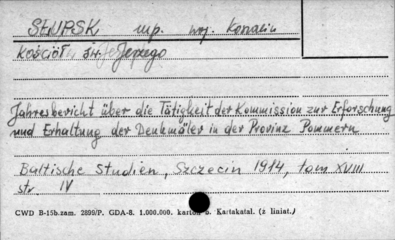 SŁUPSK woj. Koszalin
Kościół św. Jerzego
Jahresbericht über die Tätigkeit der Kommission zur Erforschung
und Erhaltung der Denkmäler in der Provinz Pommern
Baltische Studien, Szczecin 1914, tom XVIII
str. IV
CWD B-15b.zam. 2899/P. GDA-8. 1.000.000. karton b. Kartakatal. (z liniat.)